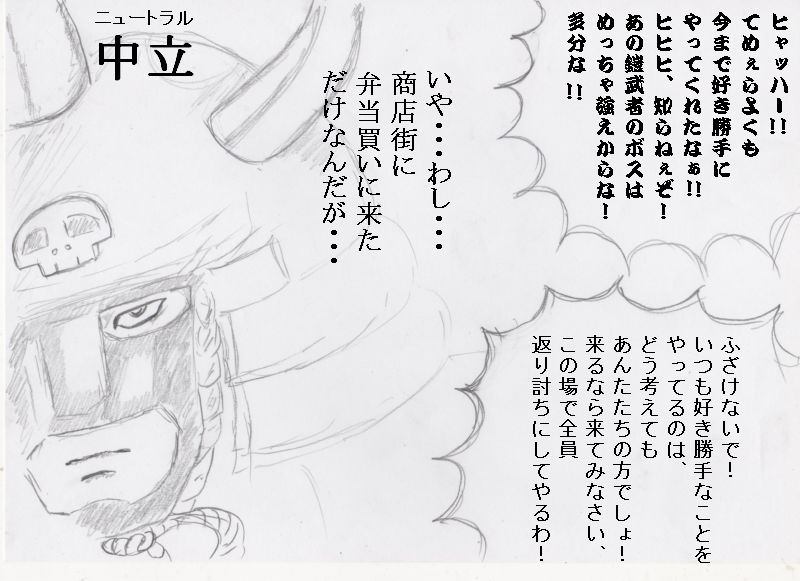 ヒャッハー!!
てめぇらよくも
今まで好き勝手に
やってくれたなぁ!!
ヒヒヒ、知らねぇぞ!
あの鎧武者のボスは
めっちゃ強えからな!
多分な!!
ふざけないで!
いつも好き勝手なことを
やってるのは、
どう考えても
あんたたちの方でしょ!
来るなら来てみなさい、
この場で全員
返り討ちにしてやるわ!
いや・・・わし・・・
商店街に
弁当買いに来た
だけなんだが・・・
ニュートラル
中立